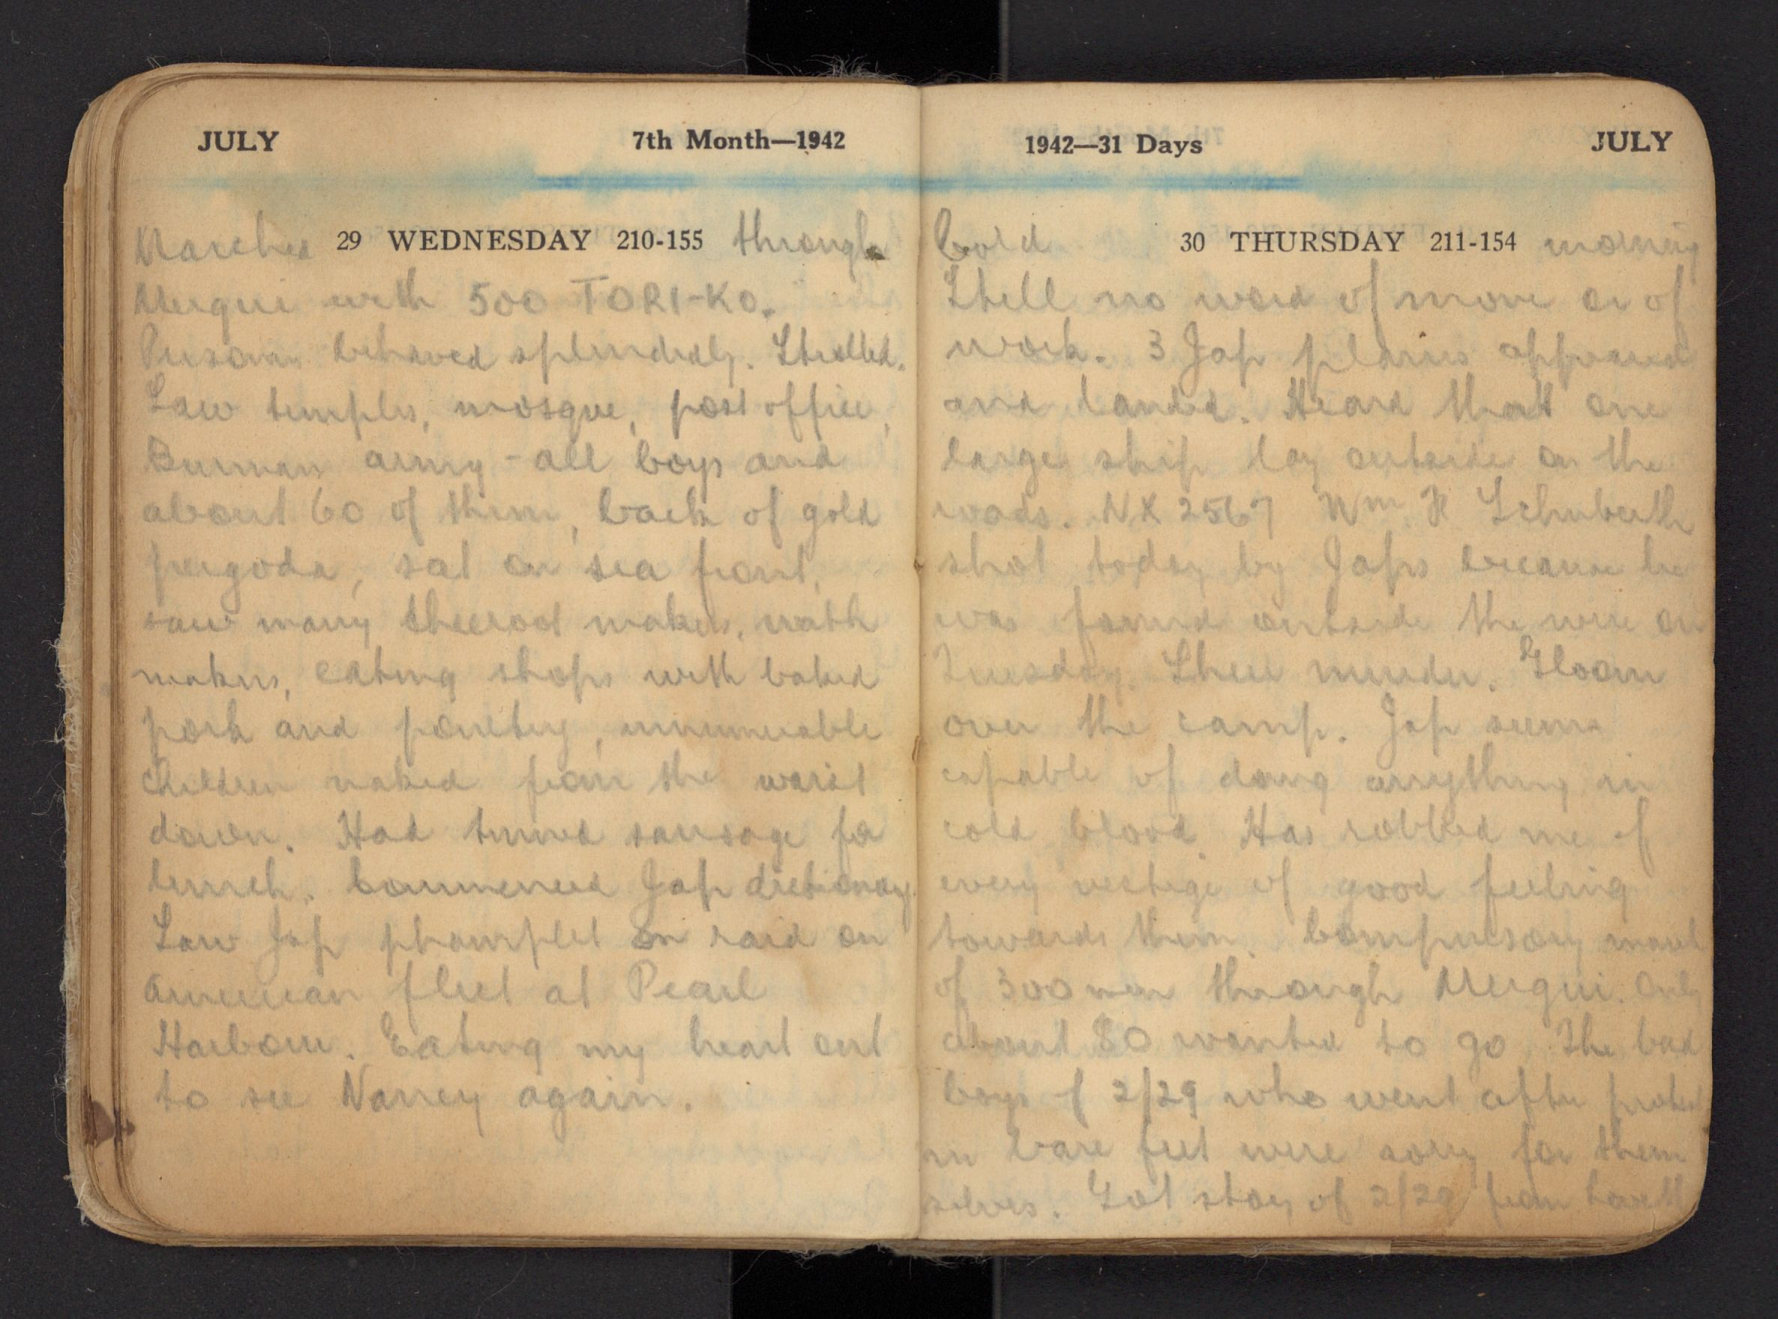 JULY 7th Month—1942
Marched 29 WEDNESDAY 210-155 through
Mergui with 500 TORI-KO.
Prisoners behaved splendidly. Thrilled.
Saw temples, mosque, post office,
Burman army - all boys and
about 60 of them, back of gold
pergoda, sat on sea front,
saw many cheeroot makers, watch
makers, eating shops with baked
pork and poultry, innumerable
children naked from the waist
down. Had tinned sausage for
lunch. Commenced Jap dictionary.
Saw Jap phamplet on raid on
American fleet at Pearl
Harbour. Eating my heart out
to see Nancy again.
1942—31 Days JULY
Cold 30 THURSDAY 211-154 morning
Still no word of move or of
work. 3 Jap planes appeared
and landed. Heard that one
large ship lay outside in the
roads. NX 2567 Wm. H. Schuberth
shot today by Japs because he
was found outside the wire on
Tuesday. Sheer murder. Gloom
over the camp. Jap seems
capable of doing anything in
cold blood. Has robbed me of
every vestige of good feeling
towards them. Compulsory march
of 300 men through Mergui. Only
about 80 wanted to go. The bad
boys of 2/29 who went after protest
in bare feet were sorry for them
selves. Got story of 2/29 from